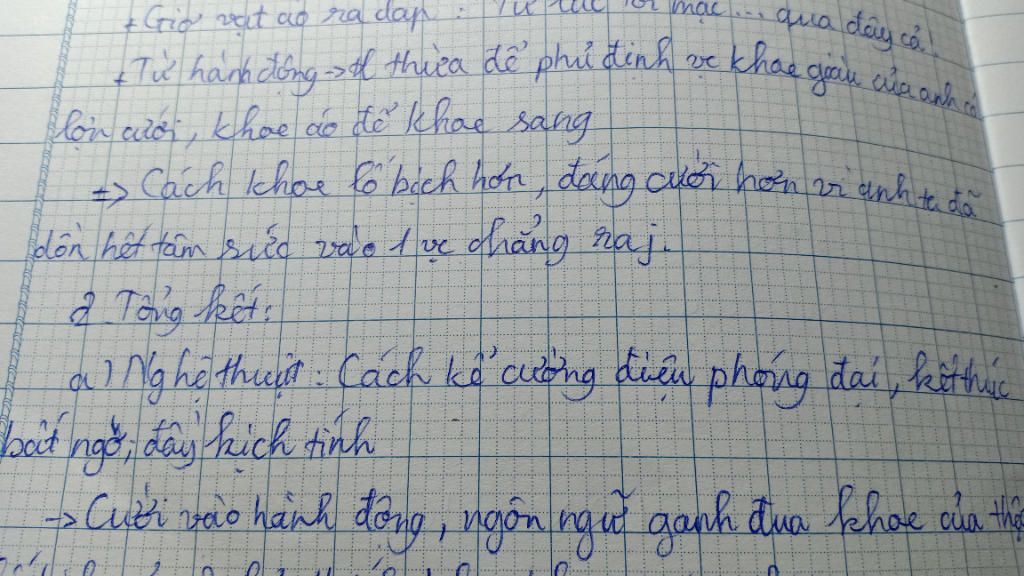 + Giơ vạt áo ra đáp : Từ lúc tôi mặc... qua đây cả!
+ Từ hành động → thừa để phủ định vc khoe giàu của anh có
lợn cưới, khoe áo để khoe sang
=> Cách khoe lố bịch hơn, đáng cười hơn vì anh ta đã
dồn hết tâm sức vào 1 vc chẳng ra j.
2. Tổng kết:
a) Nghệ thuật : Cách kể cường điệu phóng đại, kết thúc
bất ngờ, đầy kịch tính
→ Cười vào hành động, ngôn ngữ ganh đua khoe của